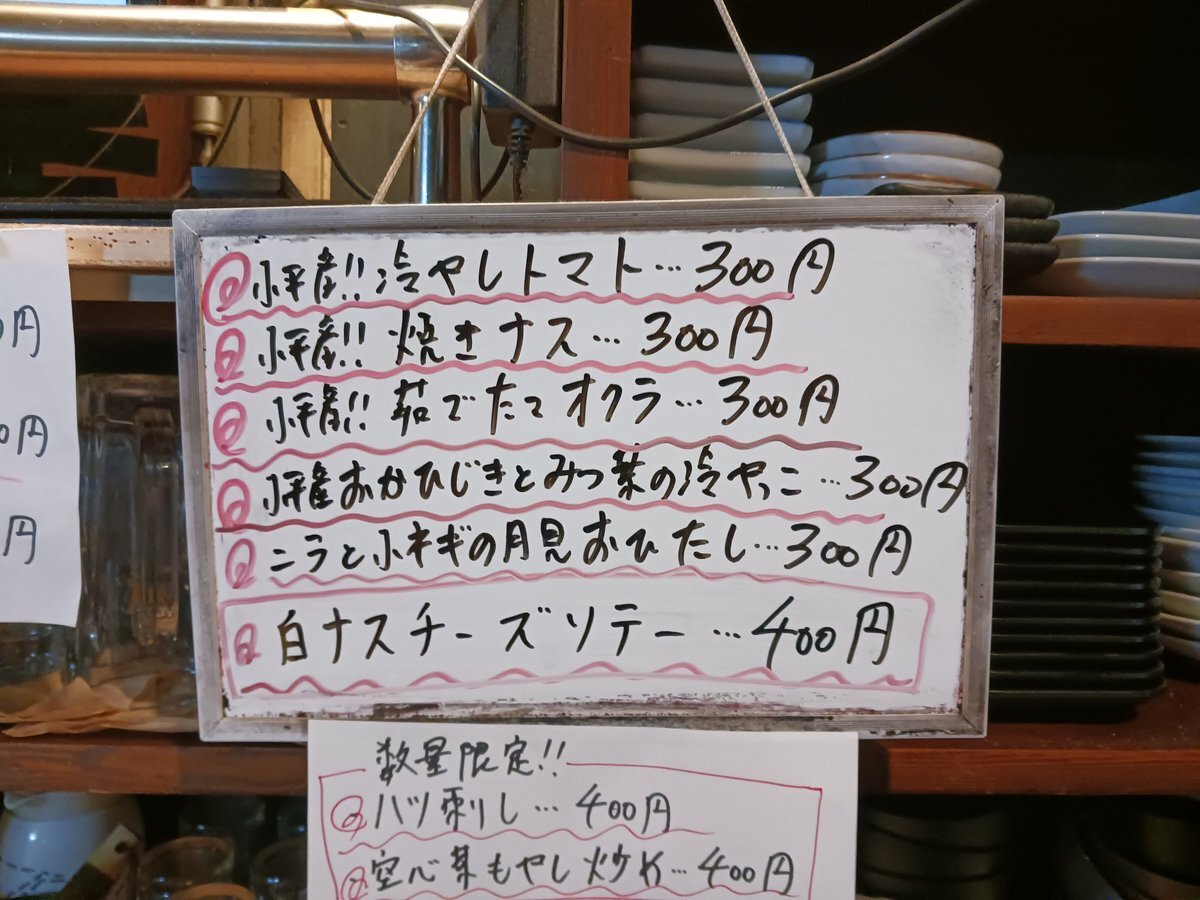 小平産!! 冷やしトマト…300円
小平産!! 焼きナス…300円
小平産!! 茹でたてオクラ…300円
小平産おかひじきとみつ葉の冷やっこ…300円
ニラと小ネギの月見おひたし…300円
白ナスチーズソテー…400円
数量限定!!
ハツ刺し…400円
空心菜もやし炒め…400円
0円
0円
円